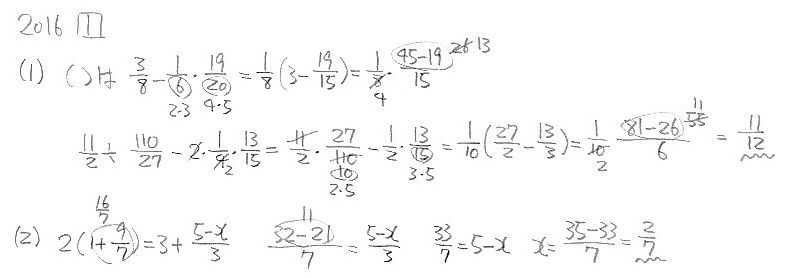 2016 1
(1) ( )は 3/8 - 1/6 · 19/20 = 1/8 (3 - 19/15) = 1/8 · (45-19)/15 26 13
2·3 4·5 4
11/2 ÷ 110/27 - 2 · 1/4 · 13/15 = 11/2 · 27/110 - 1/2 · 13/15 = 1/10 (27/2 - 13/3) = 1/10 · (81-26)/6 = 11/12
2 10 2·5 3·5 2 55 11
16/7 11
(2) 2(1 + 9/7) = 3 + (5-x)/3 (32-21)/7 = (5-x)/3 33/7 = 5-x x = (35-33)/7 = 2/7